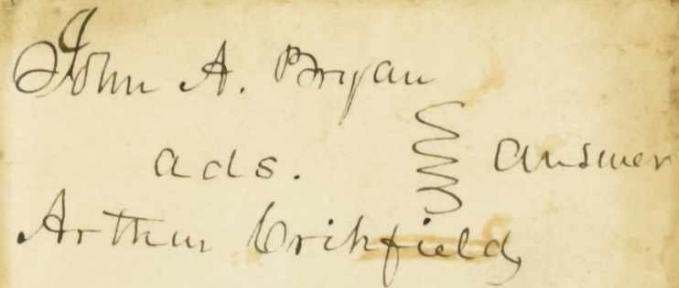 John A. Bryan
ads. Answer
Arthur Crihfield